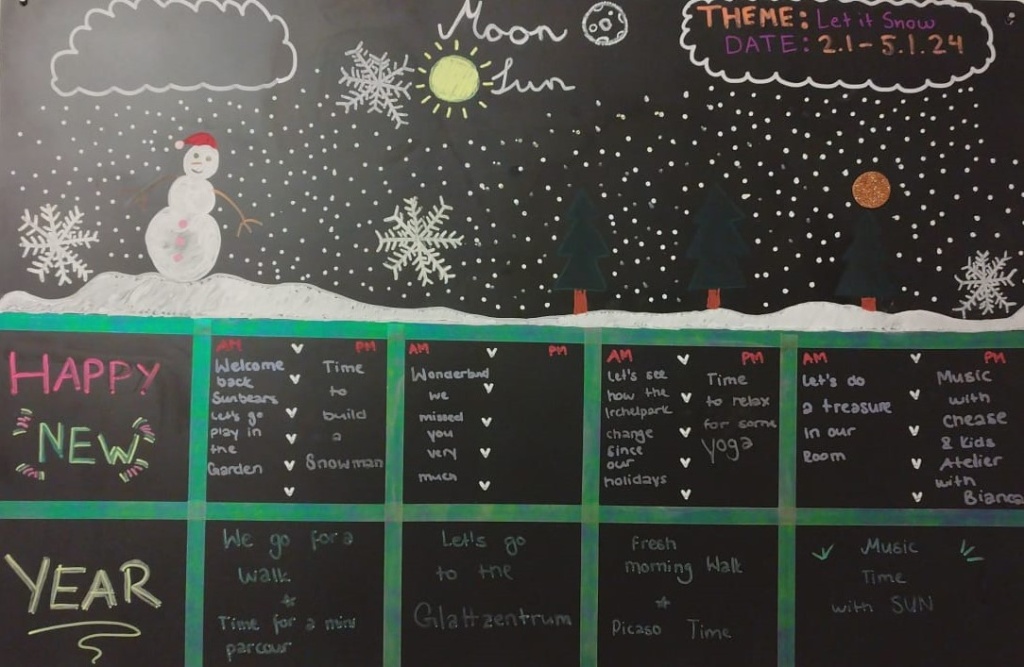 Moon
Sun
THEME: Let it Snow
DATE: 2.1 - 5.1.24
HAPPY
NEW
YEAR
AM PM
Welcome
back
Sunbears
Let's go
play in
the
Garden
Time
to
build
a
Snowman
AM PM
Wonderland
we
missed
you
very
much
AM PM
Let's see
how the
Irchelpark
change
since
our
holidays
Time
to relax
for some
yoga
AM PM
Let's do
a treasure
in our
Room
Music
with
Chease
& Kids
Atelier
with
Bianca
We go for a
walk
Time for a mini
parcour
Let's go
to the
Glattzentrum
Fresh
morning Walk
Picaso Time
Music
Time
with SUN